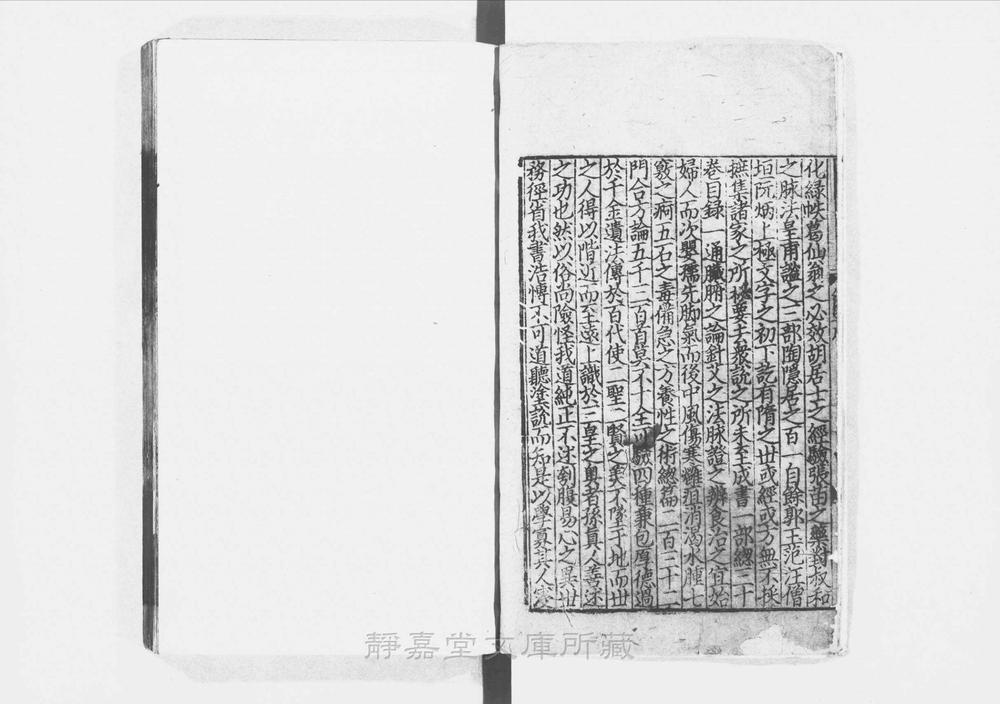 化綠帙葛仙翁之必效胡居士之經驗張苗之藥對叔和
之脉法皇甫謐之三部陶隱居之百一自餘郭玉范汪僧
垣阮炳上極文字之初下訖有隋之世或經或方無不採
摭集諸家之所祕要去衆說之所未至成書一部總三十
卷目録一通臓腑之論針艾之法脉證之辨食治之宜始
婦人而次嬰孺先脚氣而後中風傷寒癰疽消渴水腫七
竅之痾五石之毒備急之方養性之術總篇二百三十二
門合方論五千三百首莫不十全可驗四種兼包厚德過
於千金遺法傳於百代使二聖二賢之美不墜于地而世
之人得以階近而至遠上識於三皇之奥者孫真人善述
之功也然以俗尚險怪我道純正不述刳腹易心之異世
務徑省我書浩博不可道聽塗説而知是以學寡其人寖
靜嘉堂文庫所藏